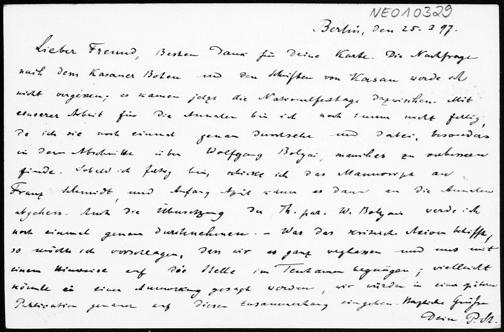 NEO10329
Berlin, den 25. 3 97.
Lieber Freund, Besten Dank für Deine Karte. Die Nachfrage
nach dem Kasaner Boten und den Schriften von Kasan werde ich
nicht vergessen; es kamen jetzt die Nationalfesttage dazwischen. Mit
unserer Arbeit für die Annalen bin ich noch immer nicht fertig,
da ich sie noch einmal genau durchsehe und dabei, besonders
in dem Abschnitte über Wolfgang Bolyai, manches zu verbessern
finde. Sobald ich fertig bin, schicke ich das Manuscript an
Franz Schmidt, und Anfang April kann es dann an die Annalen
abgehen. Auch die Übersetzung der Th. par. W. Bolyais werde ich
noch einmal genau durchnehmen. – Was das kritische betrifft,
so möchte ich vorschlagen, dass wir es ganz weglassen und uns mit
einem Hinweise auf die Stelle im Tentamen begnügen; vielleicht
könnte in einer Anmerkung gesagt werden, wir würden in einer späteren
Publication genauer auf diesen Zusammenhang eingehen. Herzliche Grüsse
Dein P. St.